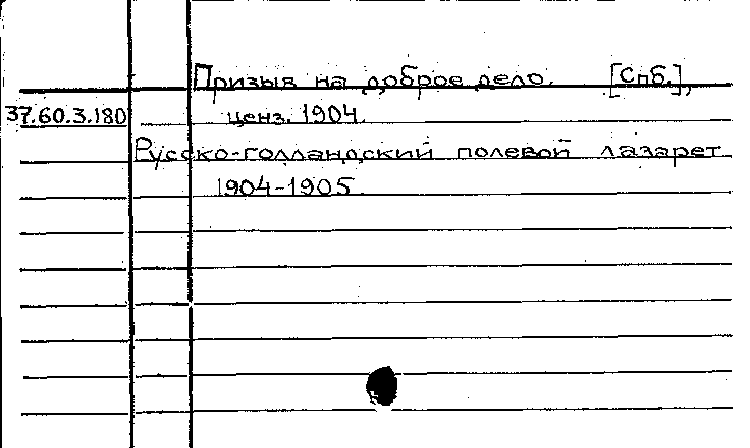 Призыв на доброе дело. [Спб.],
37.60.3.180 ценз. 1904.
Русско-голландский полевой лазарет
1904-1905.